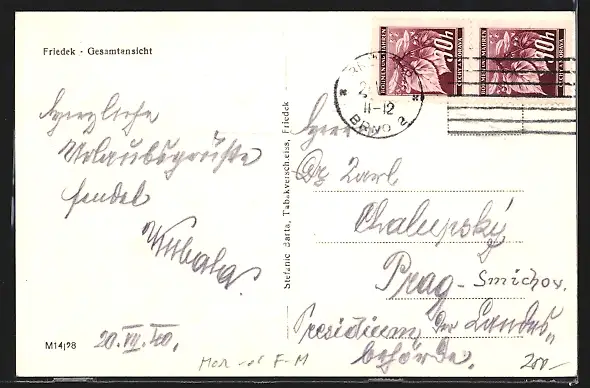 Friedek - Gesamtansicht
Herzliche
Urlaubsgrüße
sendet
Kubala
20.VII.40.
M14|98
Stefanie Barta, Tabakverschleiss, Friedek
BÖHMEN UND MÄHREN
ČECHY A MORAVA
BÖHMEN UND MÄHREN
ČECHY A MORAVA
11-12
BRNO 2
Herrn
Karl
Chalupský
Prag - Smíchov.
Presidium der Landes„
behörde.
200-